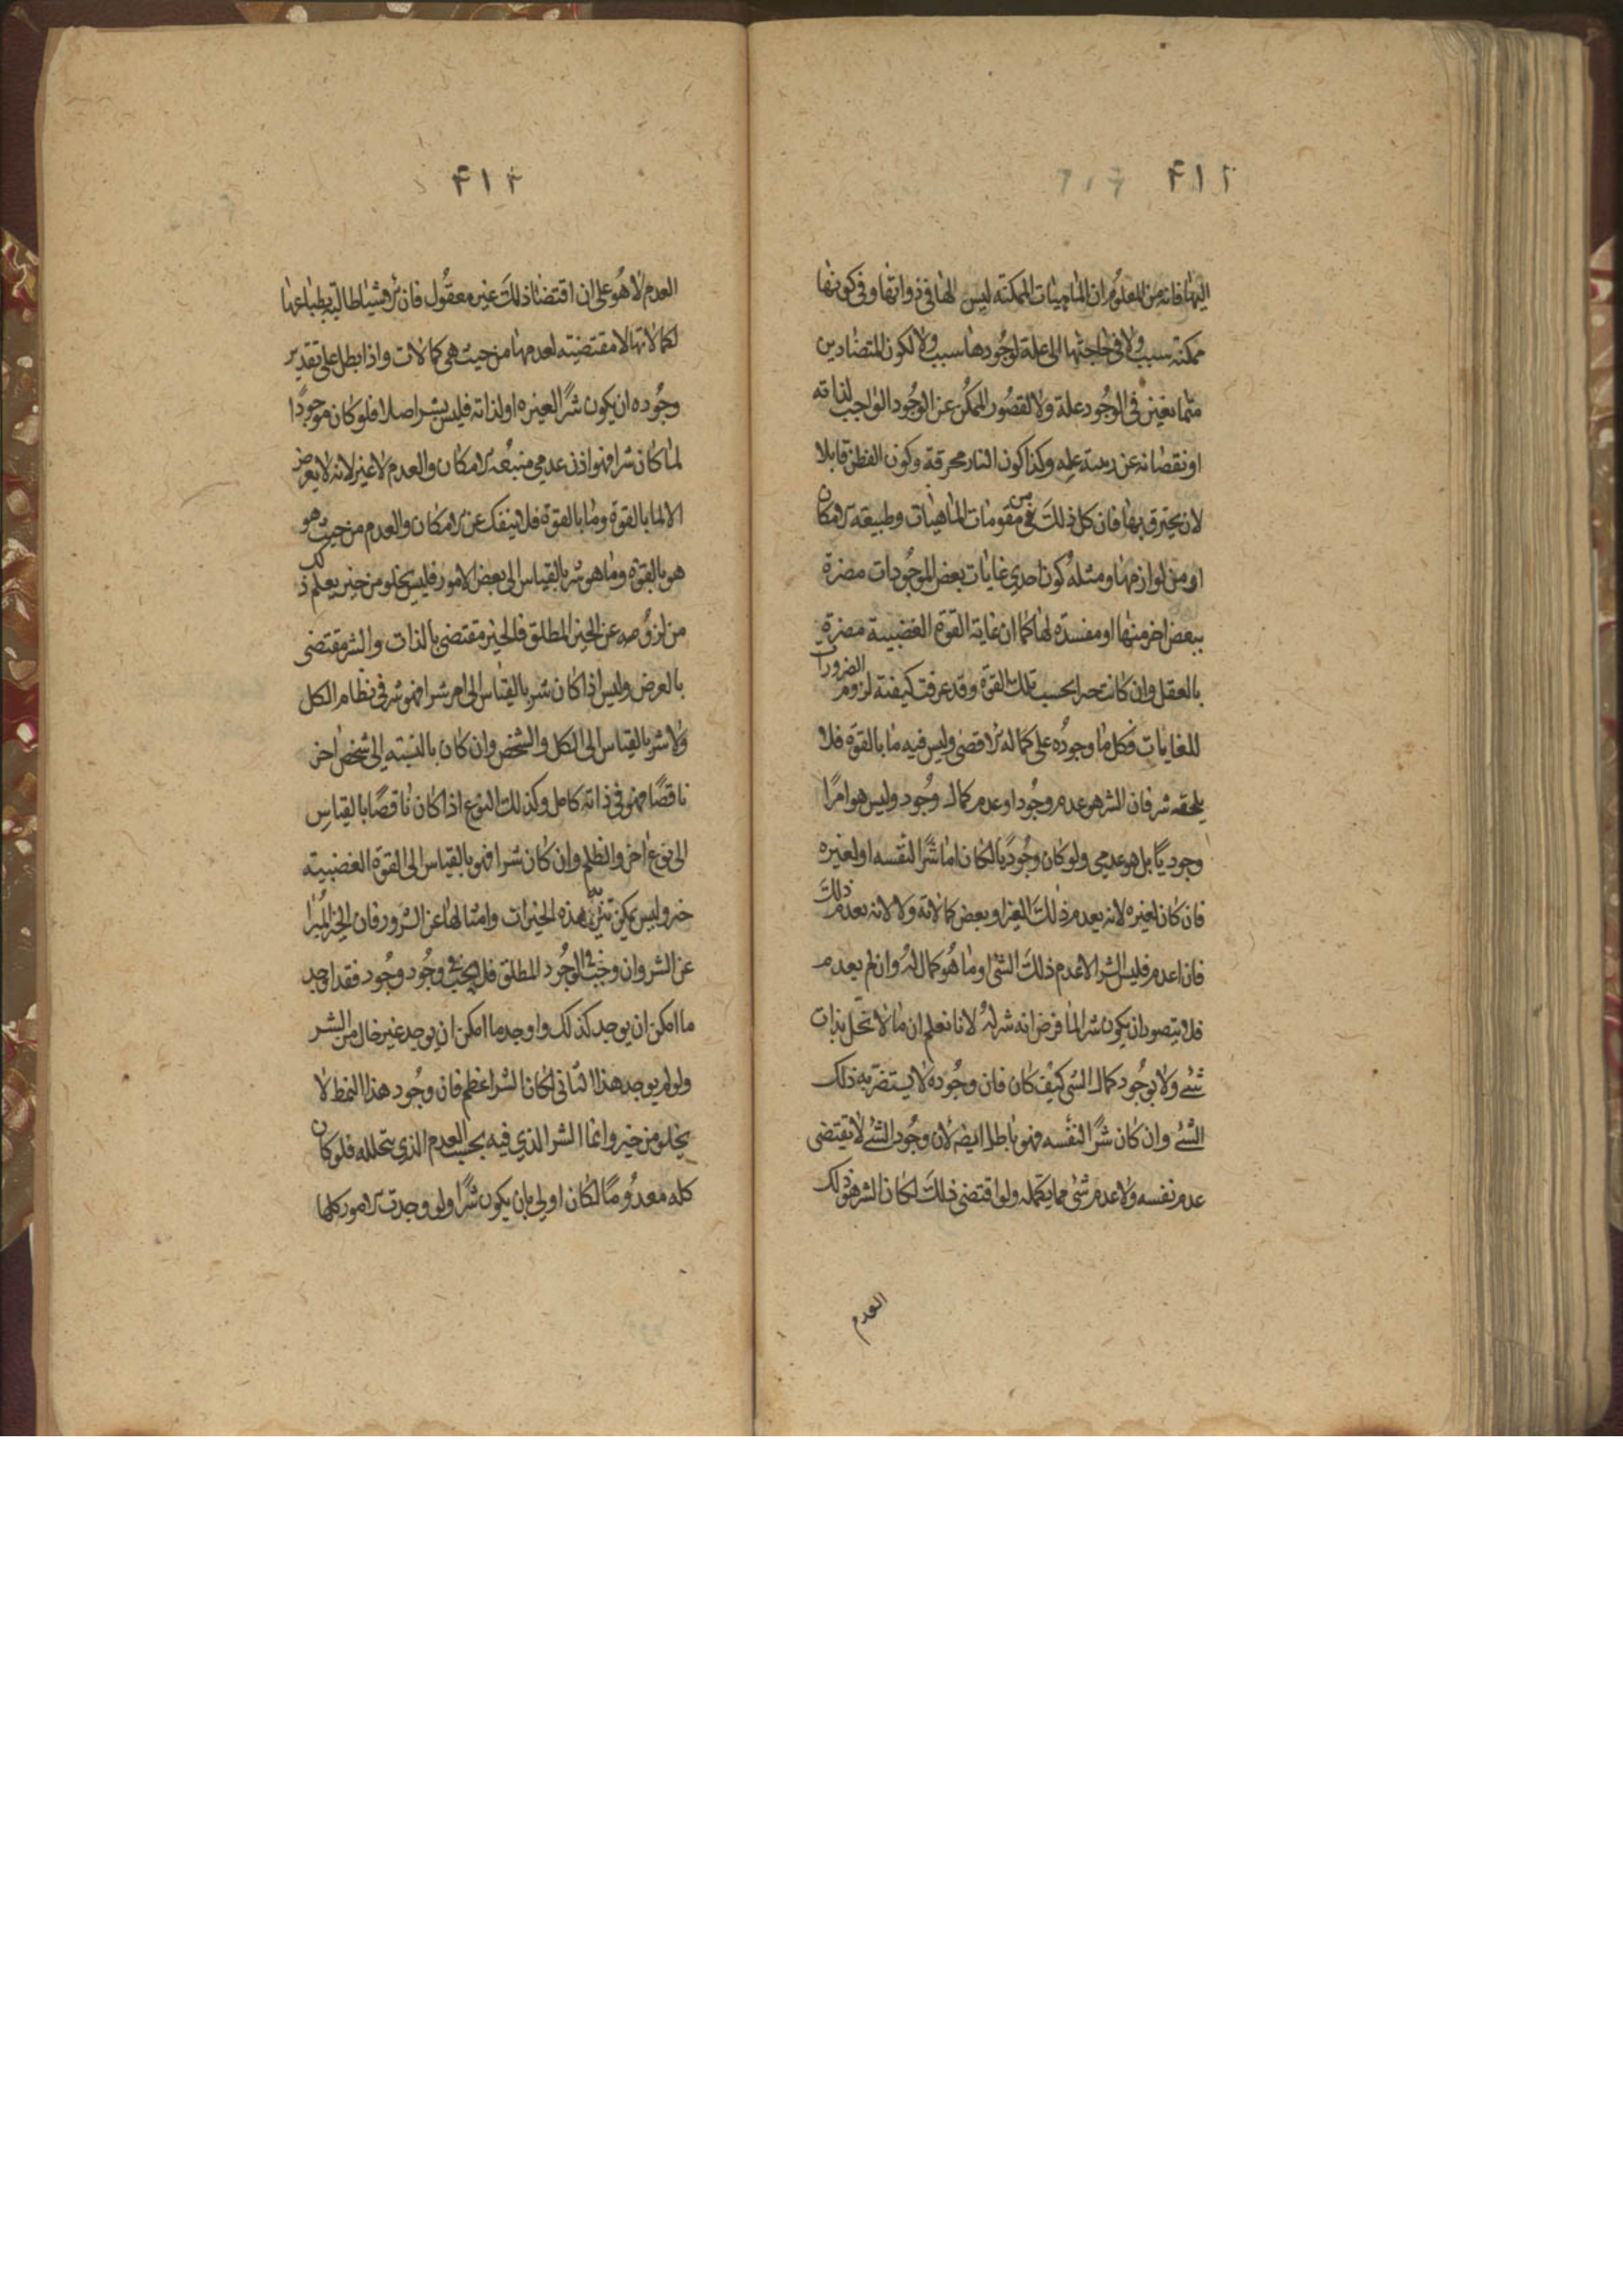 ۴۱۲
اليها فانه من المعلوم ان الماهيات الممكنه ليس لها في ذواتها وفي كونها
ممكنة سبب ولا في حاجتها الى علة لوجودها سبب ولا لكون المتضادين
متمانعين في الوجود علة ولا لقصور الممكن عن الوجود الواجب لذاته
او نقصانه عن رتبته عليه وكذا كون النار محرقة وكون القطن قابلا
لان يحترق بها فان كل ذلك من مقومات الماهيات وطبيعة الامكان
او من لوازمها ومثله كون احدى غايات بعض الموجودات مضرة
ببعض اخر منها او مفسدة لها كما ان غاية القوة الغضبية مضرة
بالعقل وان كانت خيرا بحسب تلك القوة وقد عرفت كيفية لزوم الضرورات
للغايات فكل ما وجوده على كماله الاقصى وليس فيه ما بالقوة فلا
يلحقه شر فان الشر هو عدم وجود او عدم كمال وجود وليس هو امرًا
وجوديًا بل هو عدمي ولو كان وجوديًا لكان اما شرًا لنفسه او لغيره
فان كان لغيره لانه يعدم ذلك الغير او بعض كمالاته ولا لانه يعدم ذلك
فان اعدم فليس الشر الا عدم ذلك الشئ او ما هو كمال له وان لم يعدم
فلا يتصور ان يكون شرا لما فرض انه شر له لانا نعلم ان ما لا تخل بذات
شئ ولا بوجود كمال الشئ كيف كان فان وجوده لا يستضر به ذلك
الشئ وان كان شرًا لنفسه فهو باطل ايضه لان وجود الشئ لا يقتضى
عدم نفسه ولا عدم شئ مما يكمله ولو اقتضى ذلك لكان الشر هو ذلك
العدم
۴۱۳
العدم لا هو على ان اقتضا ذلك غير معقول فان الاشيا طالبة بطباعها
لكمالاتها لا مقتضية لعدمها من حيث هي كمالات واذا بطل على تقدير
وجوده ان يكون شرًا لغيره او لذاته فليس بشر اصلا فلو كان موجودًا
لما كان شرا فهو اذن عدمي منبعه الامكان والعدم لا غير لانه لا يعرض
الا لما بالقوة وما بالقوة فلا ينفك عن الامكان والعدم من حيث هو
هو بالقوة وما هو شر بالقياس الى بعض الامور فليس يخلو من خير يعلم ذلك
من لزومه عن الخير المطلق فالخير مقتضى بالذات والشر مقتضى
بالعرض وليس اذا كان شر بالقياس الى امر شرا فهو شر في نظام الكل
ولا شر بالقياس الى الكل والشخص وان كان بالنسبته الى شخص اخر
ناقصًا فهو في ذاته كامل وكذلك النوع اذا كان ناقصًا بالقياس
الى نوع اخر والظلم وان كان شرا فهو بالقياس الى القوة الغضبيته
خير وليس يمكن تبرئة هذه الخيرات وامثالها عن الشرور فان الخير المبرا
عن الشر وان وجب في الوجود المطلق فلا يجب في وجود وجود فقد اوجد
ما امكن ان يوجد كذلك واوجد ما امكن ان يوجد غير خال من الشر
ولو لم يوجد هذا الثاني لكان الشر اعظم فان وجود هذا النمط لا
يخلو من خير وانما الشر الذي فيه بحسب العدم الذي يتخلله فلو كان
كله معدومًا لكان اولى بان يكون شرًا ولو وجدت الامور كلها